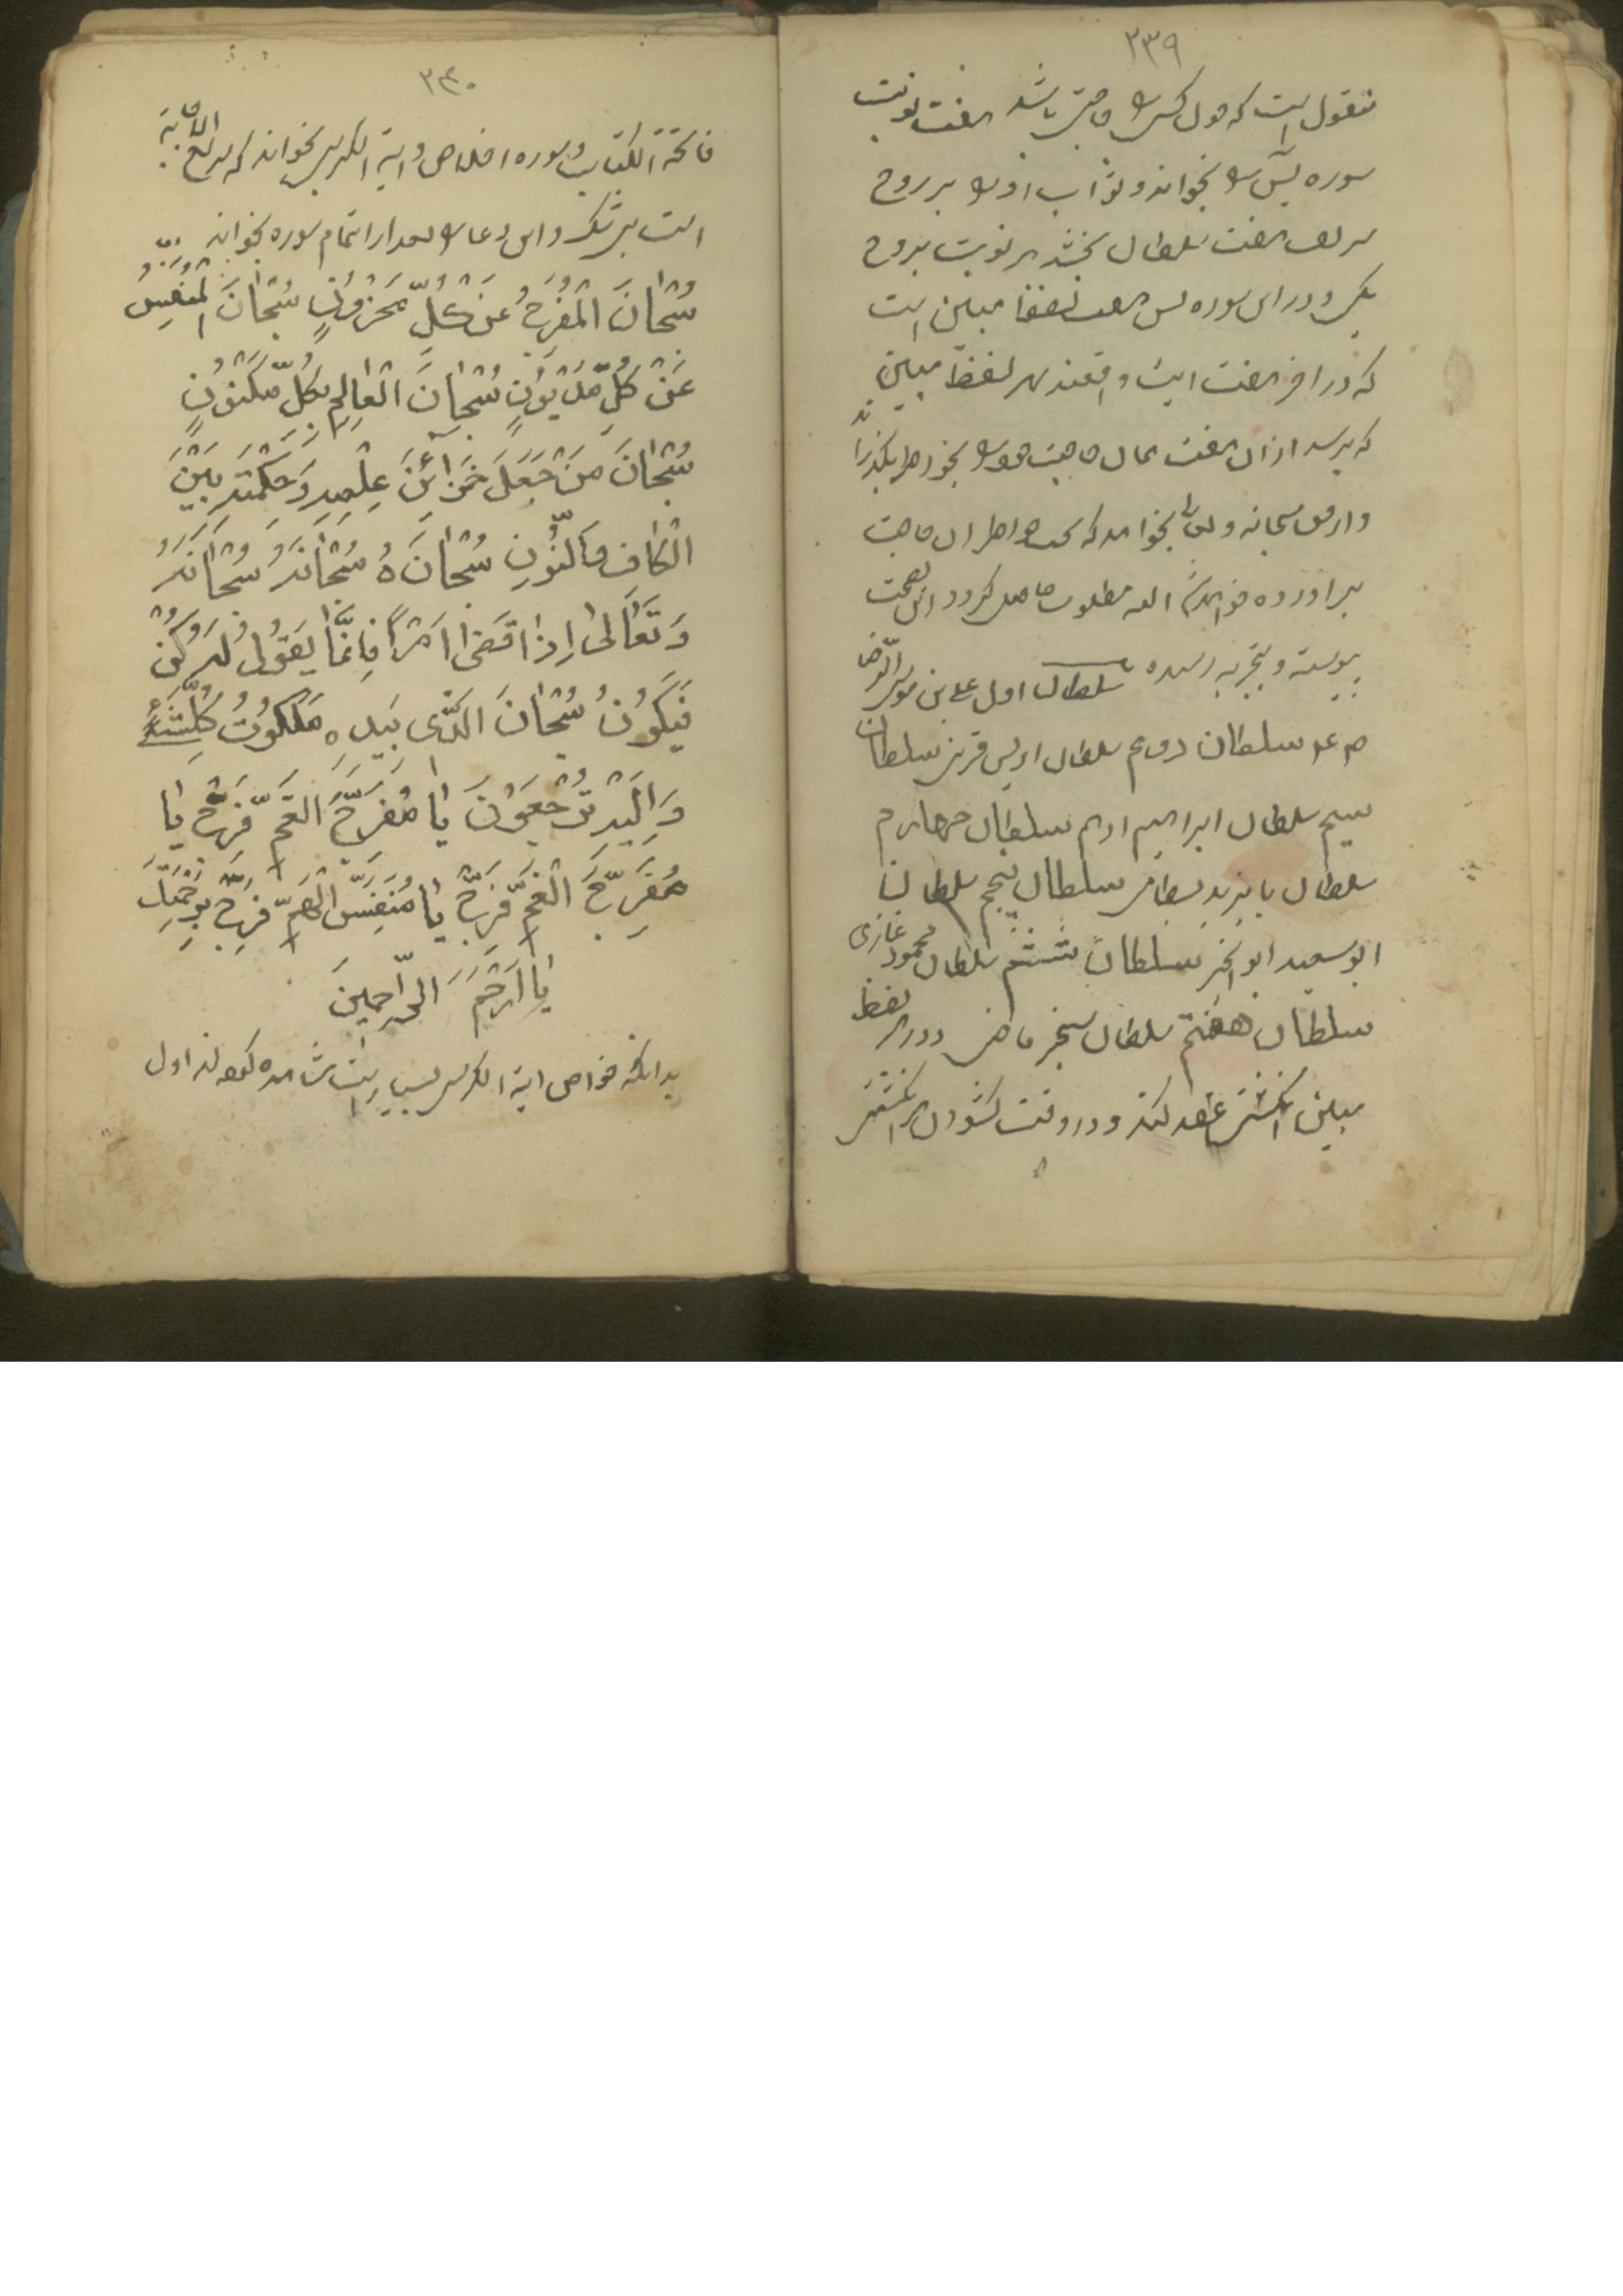 ۲۳۹
منقول است که چون کسی را حاجتی باشد هفت نوبت
سوره یس را بخواند و ثواب او را بر روح
هفت سلطان بخشد هر نوبت بروح
یکی و در این سوره یس هفت لفظ مبین است
که در آخر هفت آیت واقعند بهر لفظ مبین
که برسد از آن هفت حاجت خود را بخود بگذراند
و از حق سبحانه و تعالی بخواهد که حاجت
برآورده مطلوب حاصل گردد این بصحت
پیوسته و بتجربه رسیده سلطان اول علی بن موسی الرضا
سلطان دویم سلطان اویس قرنی سلطان
سیم سلطان ابراهیم ادهم سلطان چهارم
سلطان بایزید بسطامی سلطان پنجم سلطان
ابو سعید ابو الخیر سلطان ششم سلطان محمود غازی
سلطان هفتم سلطان سنجر ماضی و در هر لفظ
مبین انگشتی عقد کند و در وقت گشودن هر انگشتی
۲۴۰
فاتحة الکتاب و سوره اخلاص و آیة الکرسی بخواند که سریع الاجابة
است بی شک و این دعا را بعد از اتمام سوره بخواند
سُبْحَانَ الْمُفَرِّحِ عَنْ كُلِّ مَحْزُونٍ سُبْحَانَ الْمُنَفِّسُ
عَنْ كُلِّ مَدْيُونٍ سُبْحَانَ الْعَالِمِ بِكُلِّ مَكْنُونٍ
سُبْحَانَ مَنْ جَعَلَ خَزَائِنَ عِلْمِهِ وَحِكْمَتِهِ بَيْنَ
الْكَافِ وَالنُّونِ سُبْحَانَهُ سُبْحَانَهُ سُبْحَانَهُ
وَتَعَالَى إِذَا قَضَى أَمْرًا فَإِنَّمَا يَقُولُ لَهُ كُنْ
فَيَكُونُ سُبْحَانَ الَّذِي بِيَدِهِ مَلَكُوتُ كُلِّ شَيْءٍ
وَإِلَيْهِ تُرْجَعُونَ يَا مُفَرِّحَ الْغَمِّ فَرِّحْ يَا
مُفَرِّحَ الْغَمِّ فَرِّحْ يَا مُنَفِّسَ الْهَمِّ فَرِّحْ بِرَحْمَتِكَ
يَا أَرْحَمَ الرَّاحِمِينَ
بدانکه خواص آیة الکرسی بسیار است اول